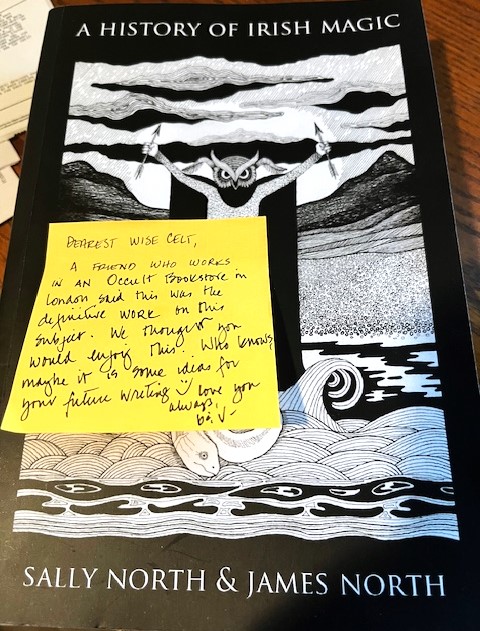 A HISTORY OF IRISH MAGIC
DEAREST WISE CELT,
A FRIEND WHO WORKS
IN AN OCCULT BOOKSTORE in
London said this was the
definitive work on this
subject. We thought you
would enjoy this. Who knows,
maybe it is some ideas for
your future writing love you
always,
SALLY NORTH & JAMES NORTH